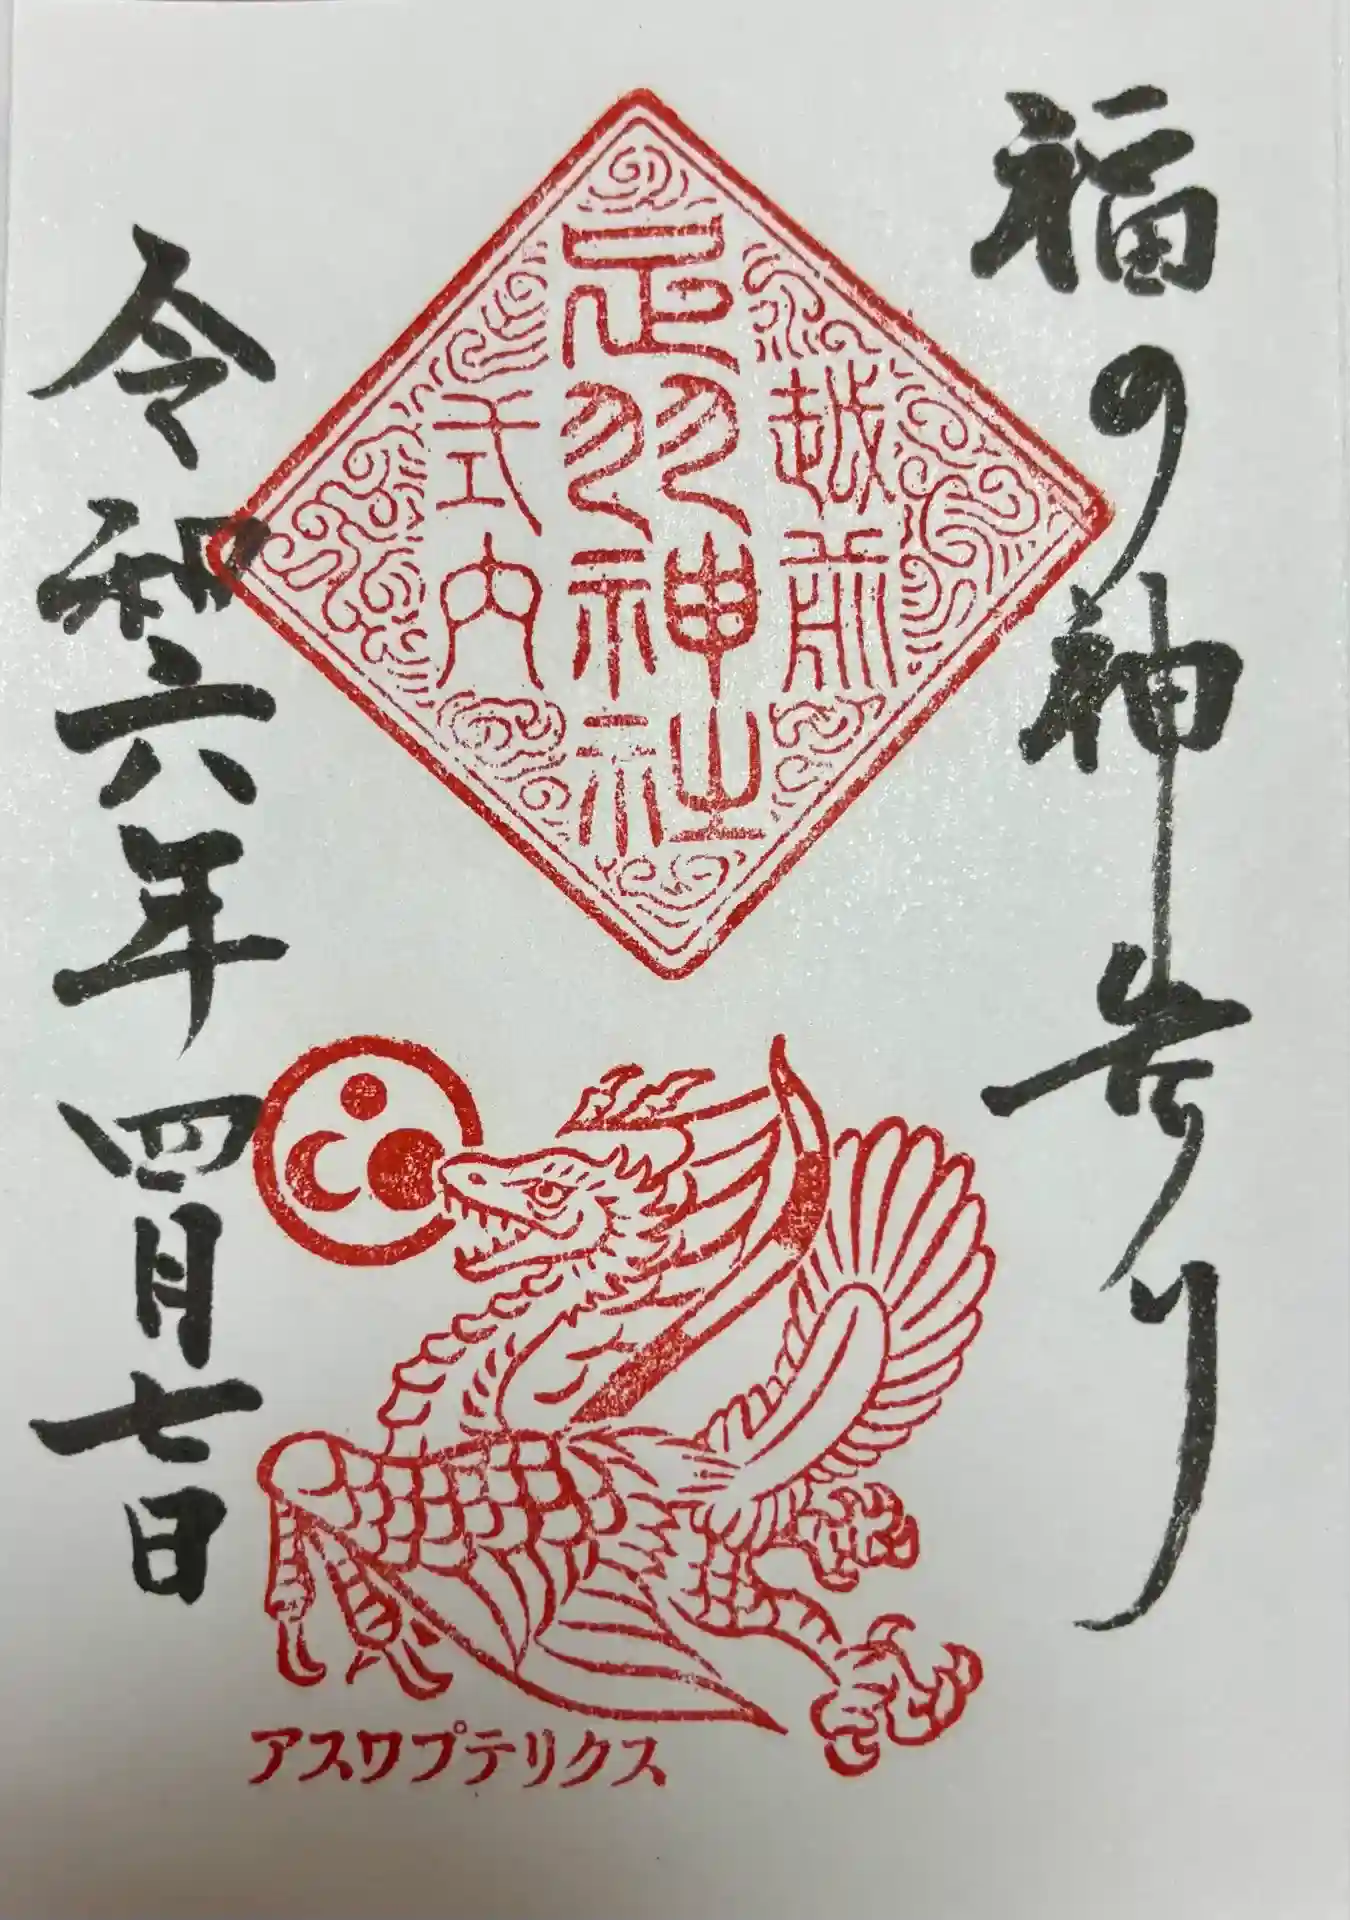 福の神告り
越前
足羽神社
式内
令和六年四月七日
アスワプテリクス